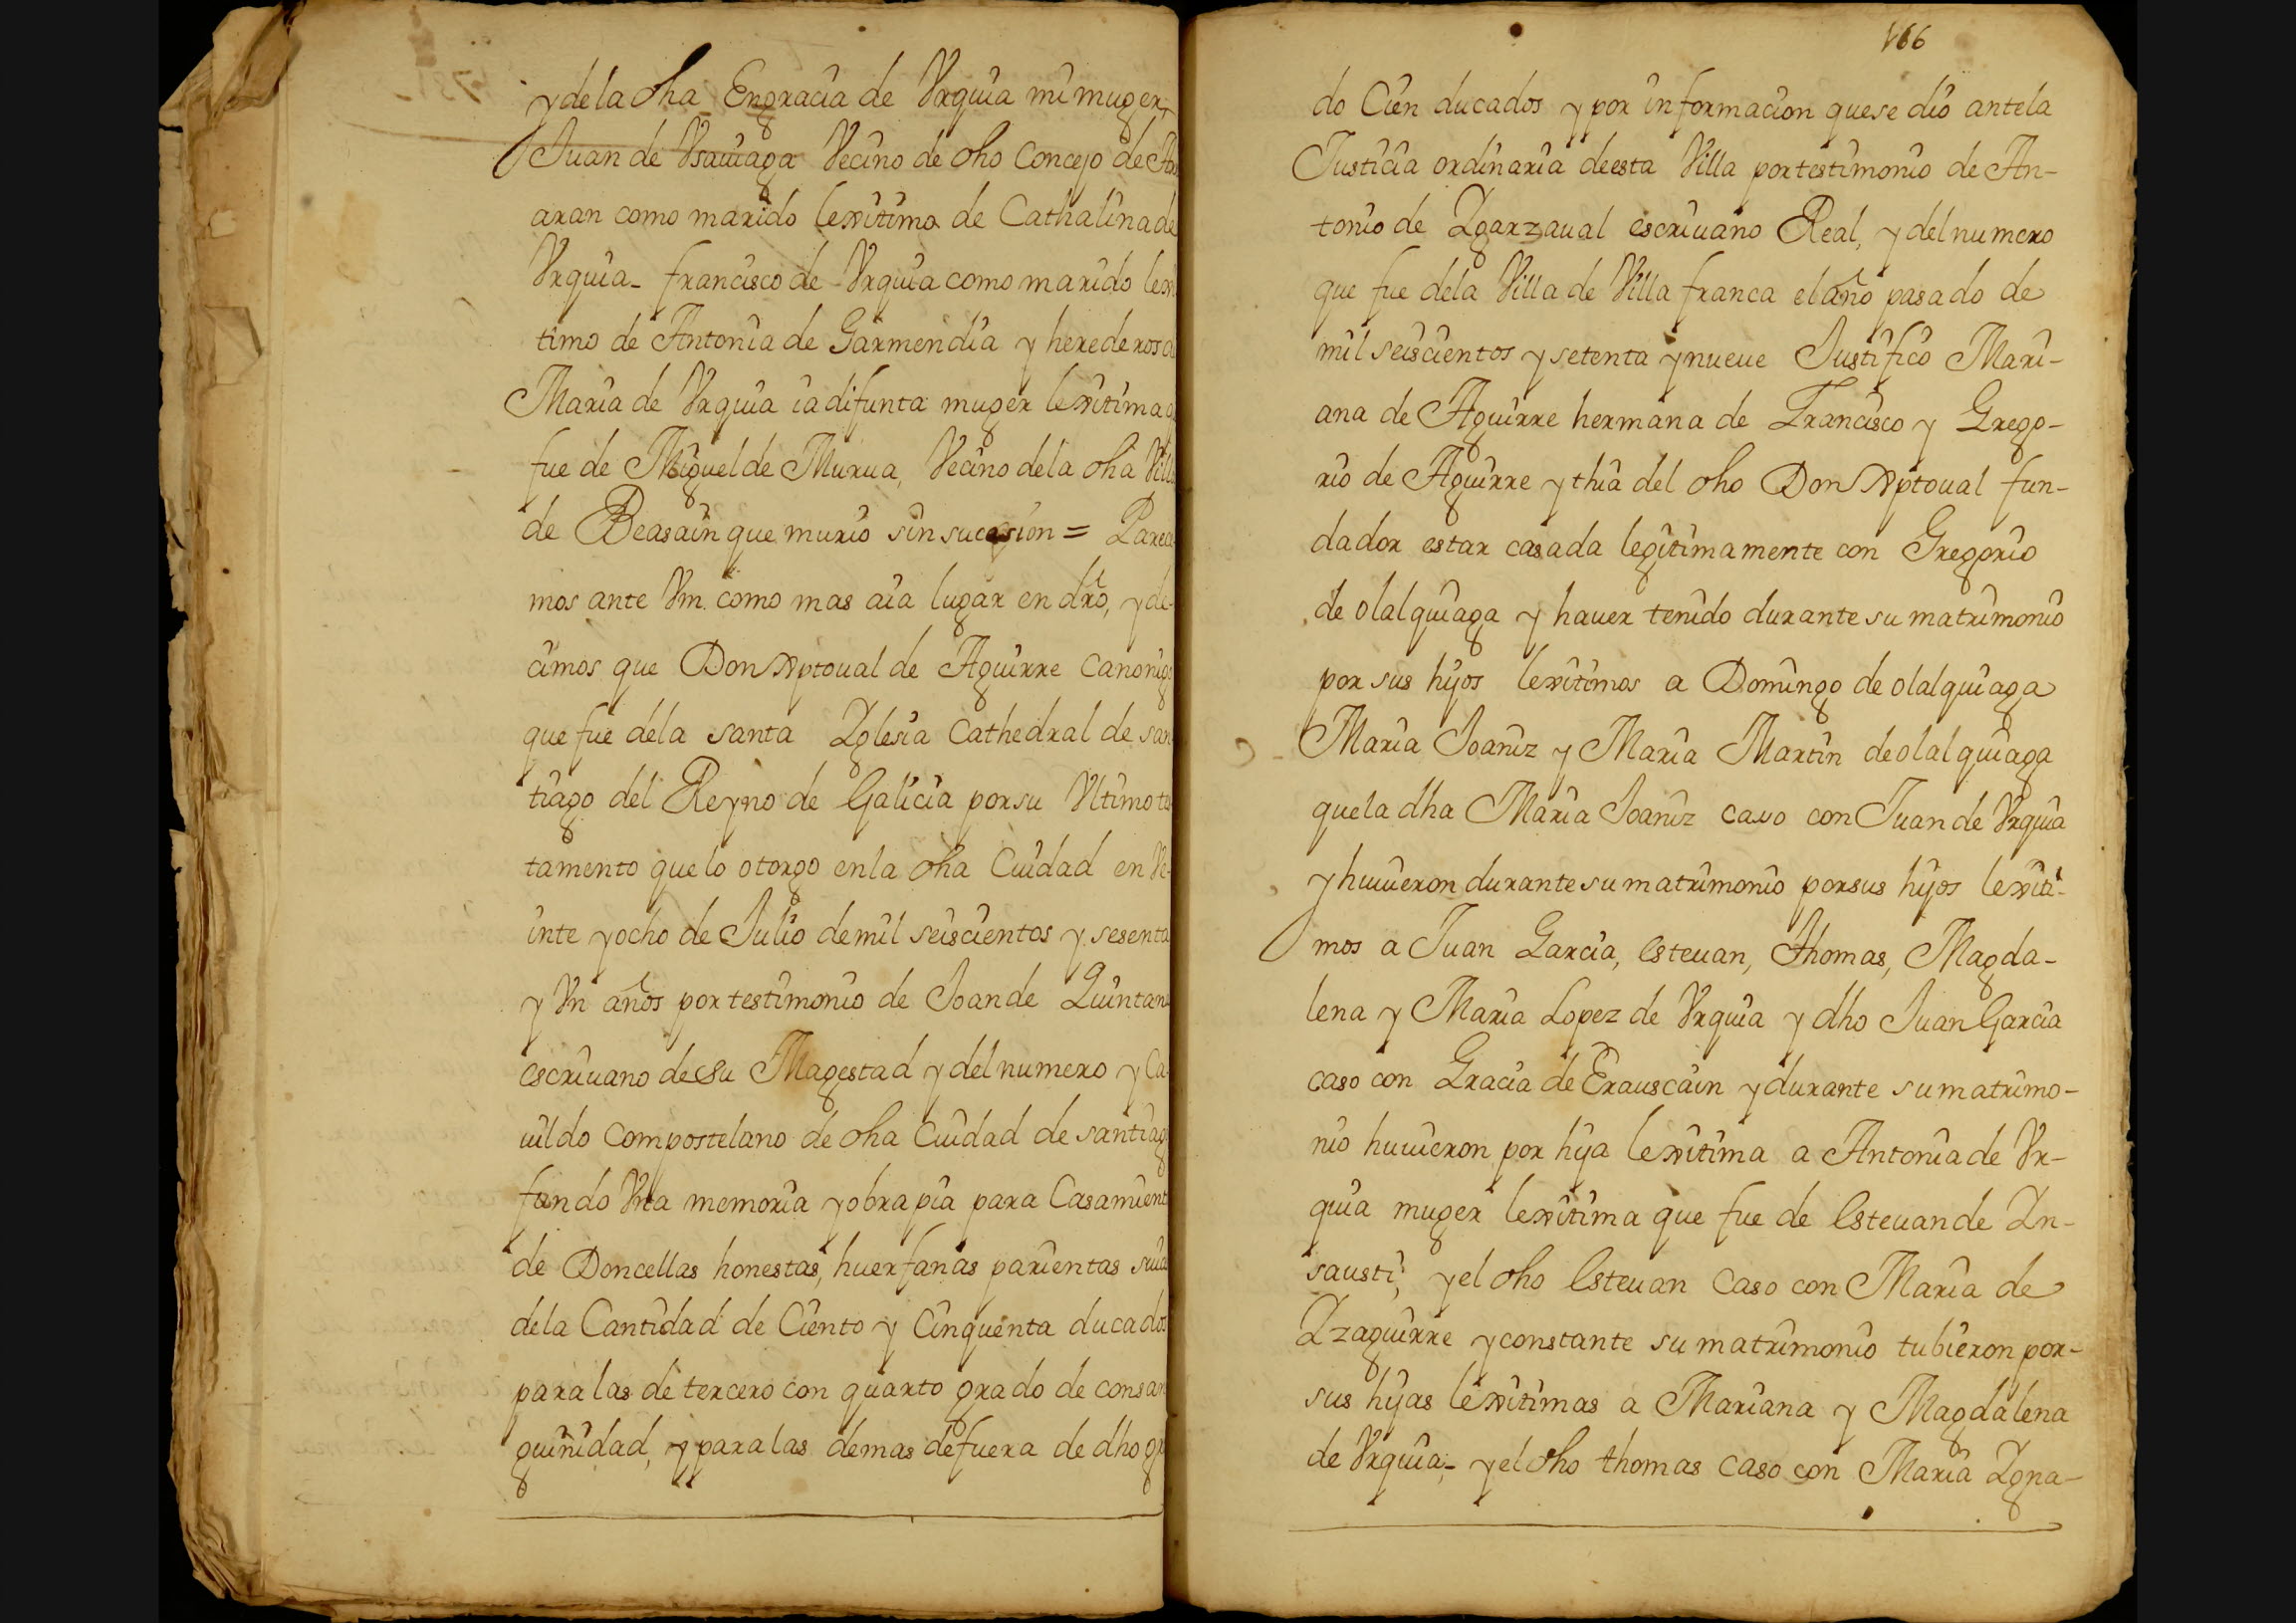 y de la dha Engracia de Vrquia mi muger,
Juan de Vsauiaga Vecino de dho Concejo de
aran como marido lexitimo de Cathalina de
Vrquia_ francisco de Vrquia como marido lexi
timo de Antonia de Garmendia y herederos d
Maria de Vrquia ia difunta muger lexitima q
fue de Miguel de Murua, Vecino de la dha Villa
de Beasain que murio sin sucesion = Parece
mos ante Vm. como mas aia lugar en dro, y de-
cimos que Don Xptoual de Aguirre Canonigo
que fue dela santa Yglesia Cathedral de san
tiago del Reyno de Galicia por su Vltimo te
tamento que lo otorgo en la dha Ciudad en Ve-
inte y ocho de Julio de mil seiscientos y sesenta
y Vn años por testimonio de Joan de Quintana
escriuano de su Magestad y del numero y Ca-
uildo Compostelano de dha Ciudad de santiago
fundo Vna memoria y obra pia para Casamient
de Doncellas honestas, huerfanas parientas suia
de la Cantidad de Ciento y Cinquenta ducados
para las de tercero con quarto grado de consan
guinidad, y para las demas de fuera de dho gr
166
do Cien ducados y por informacion que se dio ante la
Justicia ordinaria de esta Villa por testimonio de An-
tonio de Ygarzaual escriuano Real, y del numero
que fue dela Villa de Villa franca el año pasado de
mil seiscientos y setenta y nueue Justifico Mari-
ana de Aguirre hermana de Francisco y Grego-
rio de Aguirre y thia del dho Don Xptoual fun-
dador estar casada legitimamente con Gregorio
de olalquiaga y hauer tenido durante su matrimonio
por sus hijos lexitimos a Domingo de olalquiaga
Maria Joaniz y Maria Martin de olalquiaga
que la dha Maria Joaniz caso con Juan de Vrquia
y huuieron durante su matrimonio por sus hijos lexiti-
mos a Juan Garcia, esteuan, thomas, Magda-
lena y Maria Lopez de Vrquia y dho Juan Garcia
caso con Gracia de Erauscain y durante su matrimo-
nio huuieron por hija lexitima a Antonia de Vr-
quia muger lexitima que fue de esteuan de Yn-
sausti, y el dho esteuan Caso con Maria de
Yzaguirre y constante su matrimonio tubieron por-
sus hijas lexitimas a Mariana y Magdalena
de Vrquia,_ y el dho thomas Caso con Maria Ygna-